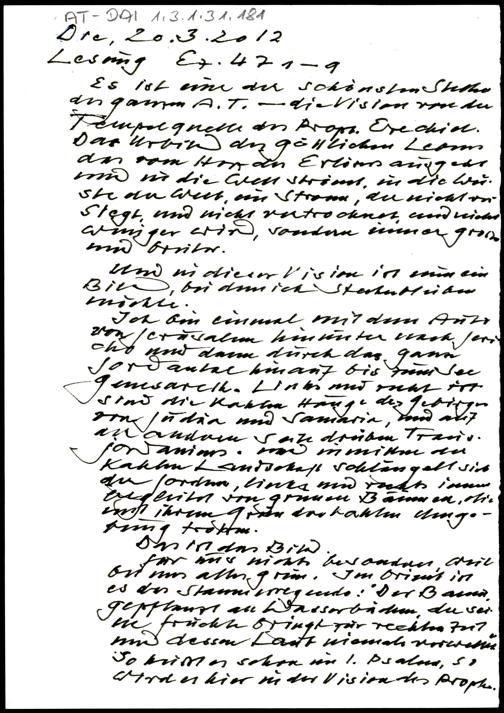 AT-DAI 1.3.1.31.181
Die, 20.3.2012
Lesung Ez. 47 1-9
Es ist eine der schönsten Stellen
des ganzen A.T. — die Vision von der
Tempelquelle des Proph. Ezechiel.
Das Urbild des göttlichen Lebens
das vom Herz des Erlösers ausgeht
und in die Welt strömt, in die Wü-
ste der Welt, ein Strom, der nicht ver-
siegt, und nicht vertrocknet, und nicht
weniger wird, sondern immer grösser
und breiter.
Und in dieser Vision ist nun ein
Bild, bei dem ich steckenbleiben
möchte.
Ich bin einmal mit dem Auto
von Jerusalem hinunter nach Jeri-
cho und dann durch das ganze
Jordantal hinauf bis zum See
Genesareth. Links und rechts
sind die kahlen Hänge des Gebirges
von Judäa und Samaria, und auf
der anderen Seite drüben Trans-
jordanien. Und inmitten der
kahlen Landschaft schlängelt sich
der Jordan, links und rechts immer
begleitet von grünen Bäumen, die
mit ihrem Grün der kahlen Umge-
bung trotzen.
Das ist das Bild.
Für uns nichts besonderes, weil
bei uns alles grün. Im Orient ist
es das Staunenerregende: "Der Baum,
gepflanzt an Wasserbächen, der sei-
ne Früchte bringt zur rechten Zeit
und dessen Laub niemals verwelkt.
So heißt es schon im 1. Psalm, so
wird es hier in der Vision des Proph.